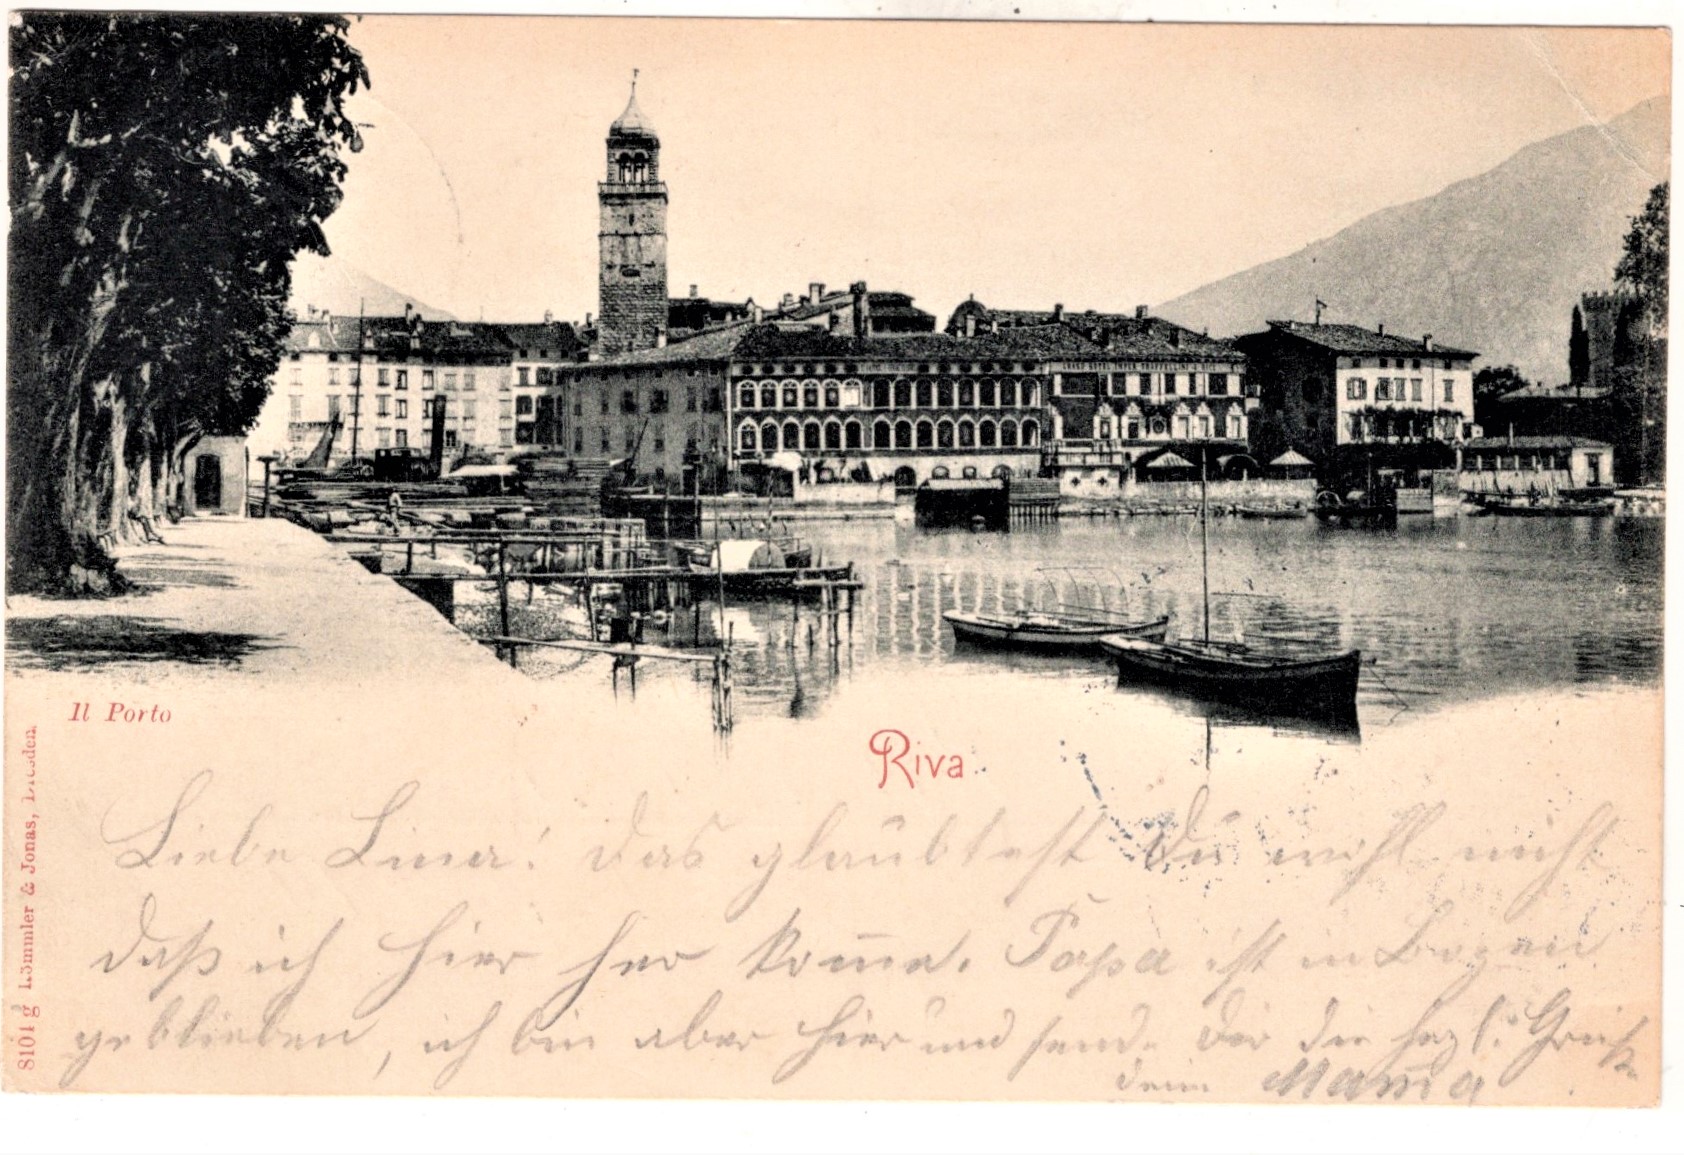 Il Porto
Riva
8101 g Römmler & Jonas, Dresden.
Liebe Lina! das glaubtest Du wohl nicht
daß ich hier her kom̅e. Papa ist in Bozen
geblieben, ich bin aber hier und sende Dir die herzl. Grüße
deine Mama